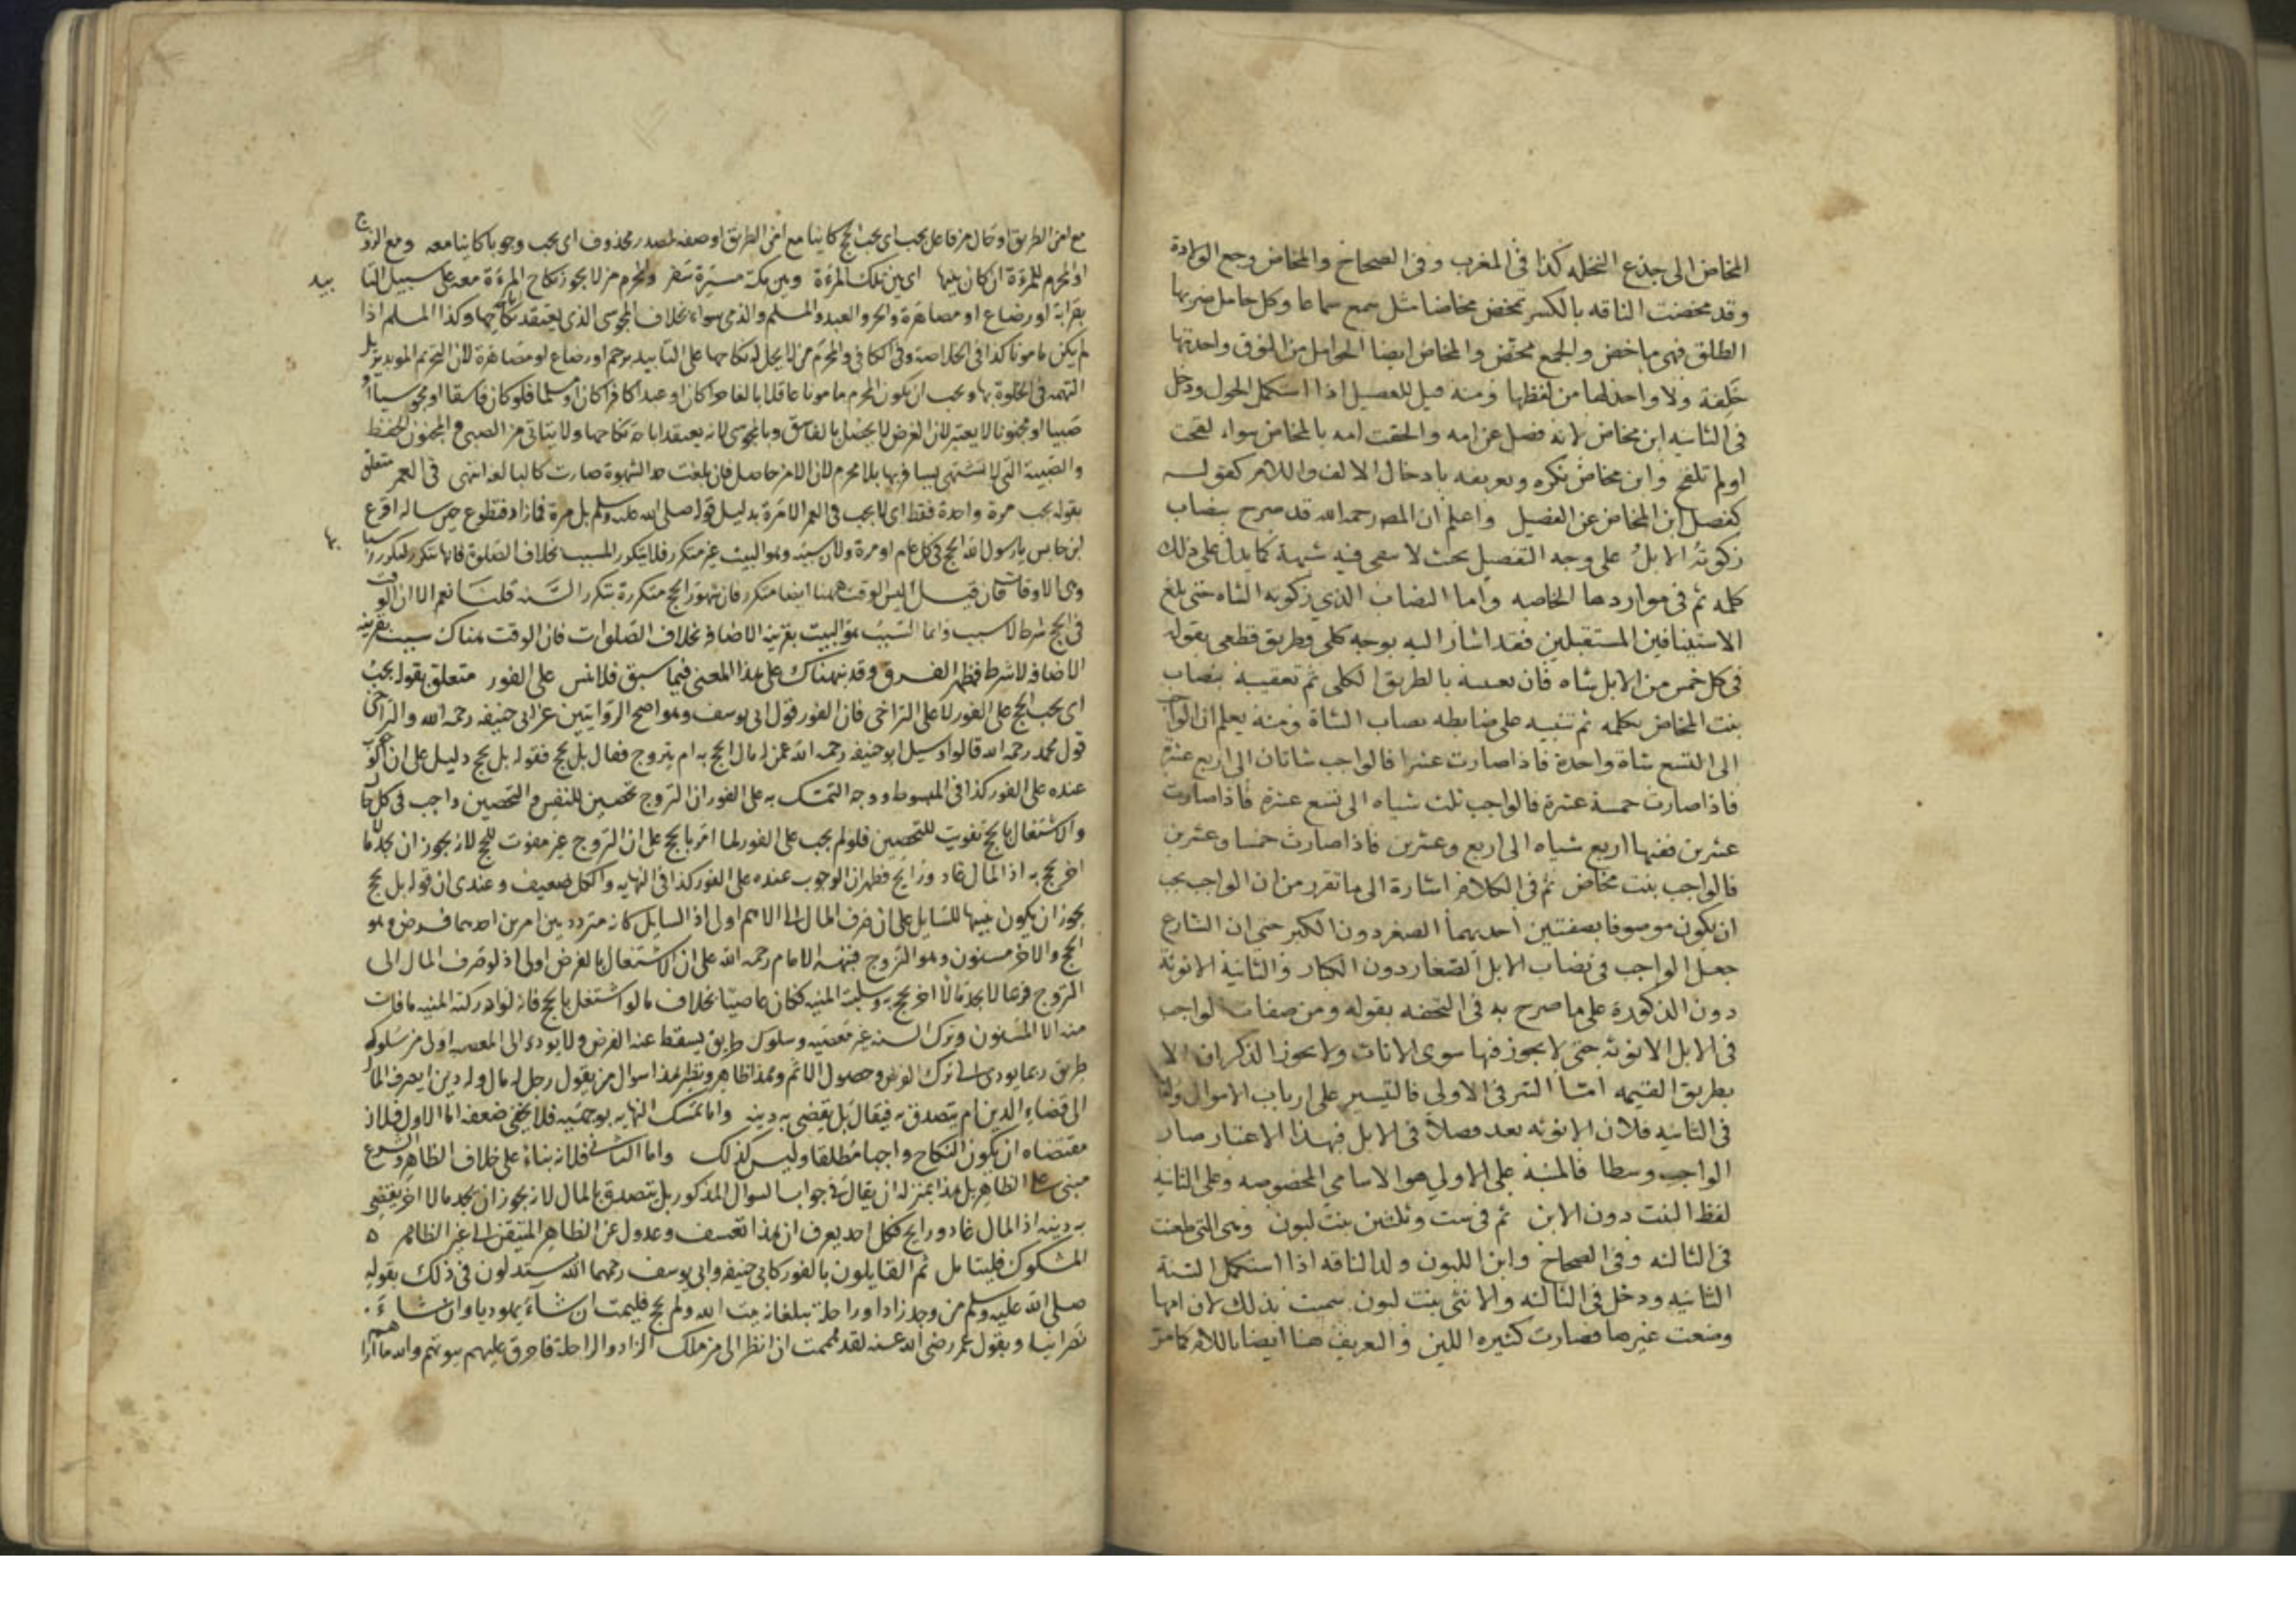 المخاض الى جذع النخله كذا فى المغرب وفى الصحاح والمخاض وجع الولادة
وقد مخضت الناقه بالكسر تمخض مخاضا مثل سمع سماعا وكل حامل ضربها
الطلق فهى ماخض والجمع مخض والمخاض ايضا الحوامل من النوق واحدتها
خَلِفة ولا واحد لها من لفظها ومنه قيل للفصيل اذا استكمل الحول ودخل
فى الثانيه ابن مخاض لانه فصل عن امه والحقت امه بالمخاض سواء لقحت
اولم تلقح وابن مخاض نكره وتعريفه بادخال الالف واللام كقوله
كفصل ابن المخاض عن الفصيل واعلم ان المص رحمه الله قد صرح بنصاب
زكوته الابل على وجه التفصيل بحث لا سعى فيه شبهة كما يدل على ذلك
كلمه ثم فى مواردها الخاصه واما النصاب الذي زكوته الشاه حتى بلغ
الاستينافين المستقبلين فقد اشار اليه بوجه كلى وطريق قطعى بقوله
فى كل خمس من الابل شاه فان بالطريق الكلى ثم تعقيبه بنصاب
بنت المخاض بكلمه ثم تنبيه على ضابطه نصاب الشاة ومنه يعلم ان الواجب
الى التسع شاة واحدة فاذا صارت عشرا فالواجب شاتان الى اربع عشرة
فاذا صارت خمسة عشرة فالواجب ثلث شياه الى تسع عشرة فاذا صارت
عشرين ففيها اربع شياه الى اربع وعشرين فاذا صارت خمسا وعشرين
فالواجب بنت مخاض ثم فى الكلام اشارة الى ما تقرر من ان الواجب يجب
ان يكون موصوفا بصفتين احديهما الصغر دون الكبر حتى ان الشارع
جعل الواجب فى نصاب الابل الصغار دون الكبار والثانية الانوثة
دون الذكورة على ما صرح به فى التحفه بقوله ومن صفات لواجب
فى الابل الانوثه حتى لا يجوز فيها سوى الاناث ولا يجوز الذكران الا
بطريق القيمه امّا السر فى الاولى فالتيسير على ارباب الاموال واما
فى الثانيه فلان الانوثه بعد فصلا فى الابل فبهذا الاعتبار صار
الواجب وسطا فالمنبه على الاولى هو الاسامي المخصوصه وعلى الثانيه
لفظ البنت دون الابن ثم فى ست وثلثين بنت لبون وهى التى طعنت
فى الثالثه وفى الصحاح وابن اللبون ولد الناقه اذا استكمل السنة
الثانيه ودخل فى الثالثه والانثى بنت لبون سميت بذلك لان امها
وضعت غيرها فصارت كثيره اللبن والتعريف هنا ايضا باللام كما مر
مع امن الطريق او حال من فاعل يجب اى يجب الحج كاينا مع امن الطريق او صفه لمصدر محذوف اى يجب وجوبا كاينا معه ومع الزوج
او المحرم للمرءة ان كان بينها اى بين تلك المرءة وبين مكة مسيرة سفر والمحرم من لا يجوز نكاح المرءة معه على سبيل التا بيد
بقرابة او رضاع او مصاهرة والحر والعبد والمسلم والذمى سواء بخلاف المجوسى الذى يعتقد نكاحها وكذا المسلم اذا
لم يكن مامونا كذا فى الخلاصة وفى الكافى والمحرم من لا يحل له نكاحها على التابيد برحم او رضاع او مصاهرة لان التحريم الموبد يزيل
التهمة فى الخلوة بها ويجب ان يكون المحرم مامونا عاقلا بالغا حرا كان او عبدا كافرا كان او مسلما فلو كان فاسقا او مجوسيا او
صبيا او مجنونا لا يعتبر لان الغرض لا يحصل بالفاسق وبالمجوسى لانه يعتقد اباحة نكاحها ولا يتاتى من الصبى والمجنون الحفظ
والصبية التى لا تشتهى يسافر بها بلا محرم لان الامن حاصل فان بلغت حد الشهوة صارت كالبالغه انتهى فى العمر متعلق
بقوله يجب مرة واحدة فقط اى لا يجب فى العمر الا مرة بدليل قوله صلى الله عليه وسلم بل مرة فما زاد فتطوع حين ساله اقرع
ابن حابس يا رسول الله الحج فى كل عام او مرة ولان سببه وهو البيت غير متكرر فلا يتكرر المسبب بخلاف الصلوة فانها تتكرر لتكرر اسبا بها
وهى الاوقات فان قيل اليس الوقت ههنا ايضا متكرر فان شهور الحج متكررة بتكرر السنه قلنا نعم الا ان الوقت
فى الحج شرط لا سبب وانما السبب هو البيت بقرينة الاضافه بخلاف الصلوات فان الوقت هناك سبب بقرينة
الاضافه لا شرط فظهر الفرق وقد نبهناك على هذا المعنى فيما سبق فلا تنس على الفور متعلق بقوله يجب
اى يجب الحج على الفور لا على التراخى فان الفور قول ابى يوسف وهو اصح الروايتين عن ابى حنيفه رحمه الله والتراخى
قول محمد رحمه الله قالوا وسيل ابو حنيفه رحمه الله عمن له مال ايحج به ام يتزوج فقال بل يحج فقوله بل يحج دليل على ان الوجوب
عنده على الفور كذا فى المبسوط ووجه التمسك به على الفور ان التزوج تحصين للنفس والتحصين واجب فى كل حال
والاشتغال بالحج تفويت للتحصين فلو لم يجب على الفور لما امر بالحج على ان التزوج غير مفوت للحج لانه يجوز ان يجد مالا
اخر يحج به اذ المال غاد ورايح فظهر ان الوجوب عنده على الفور كذا فى النهايه والكل ضعيف وعندى ان قوله بل يحج
يجوز ان يكون تنبيها للسايل على ان صرف المال الى الاهم اولى اذ السايل كانه متردد بين امرين احدهما فرض وهو
الحج والاخر مسنون وهو التزوج فنبه الامام رحمه الله على ان الاشتغال بالفرض اولى اذ لو صرف المال الى
التزوج فربما لا يجد مالا اخر يحج به وسلبته المنيه فكان عاصيا بخلاف ما لو اشتغل بالحج فانه لو ادركته المنيه ما فات
منه الا المسنون وترك السنه غير معصيه وسلوك طريق يسقط عنه الفرض ولا يودى الى المعصيه اولى من سلوك
طريق ربما يودى الى ترك الفرض وحصول الاثم وهذا ظاهر ونظير هذا سوال من يقول رجل له مال وله دين ايصرف المال
الى قضاء الدين ام يتصدق به فيقال بل يقضى به دينه واما تمسك النهايه بوجهيه فلا يخفى ضعفه اما الاول فلان
مقتضاه ان يكون النكاح واجبا مطلقا وليس كذلك واما الثانى فلانه بناء على خلاف الظاهر والشرع
مبنى على الظاهر بل هذا بمنزلة ان يقال فى جواب السوال المذكور بل يتصدق بالمال لانه يجوز ان يجد مالا اخر يقضى
به دينه اذ المال غاد ورايح فكل احد يعرف ان هذا تعسف وعدول عن الظاهر المتيقن الى غير الظاهر
المشكوك فليتامل ثم القايلون بالفور كابى حنيفه وابى يوسف رحمهما الله يستدلون فى ذلك بقوله
صلى الله عليه وسلم من وجد زادا وراحلة تبلغانه بيت الله ولم يحج فليمت ان شاء يهوديا وان شاء
نصرانيا وبقول عمر رضى الله عنه لقد هممت ان انظر الى من ملك الزاد والراحلة فاحرق عليهم بيوتهم والله ما اراهم